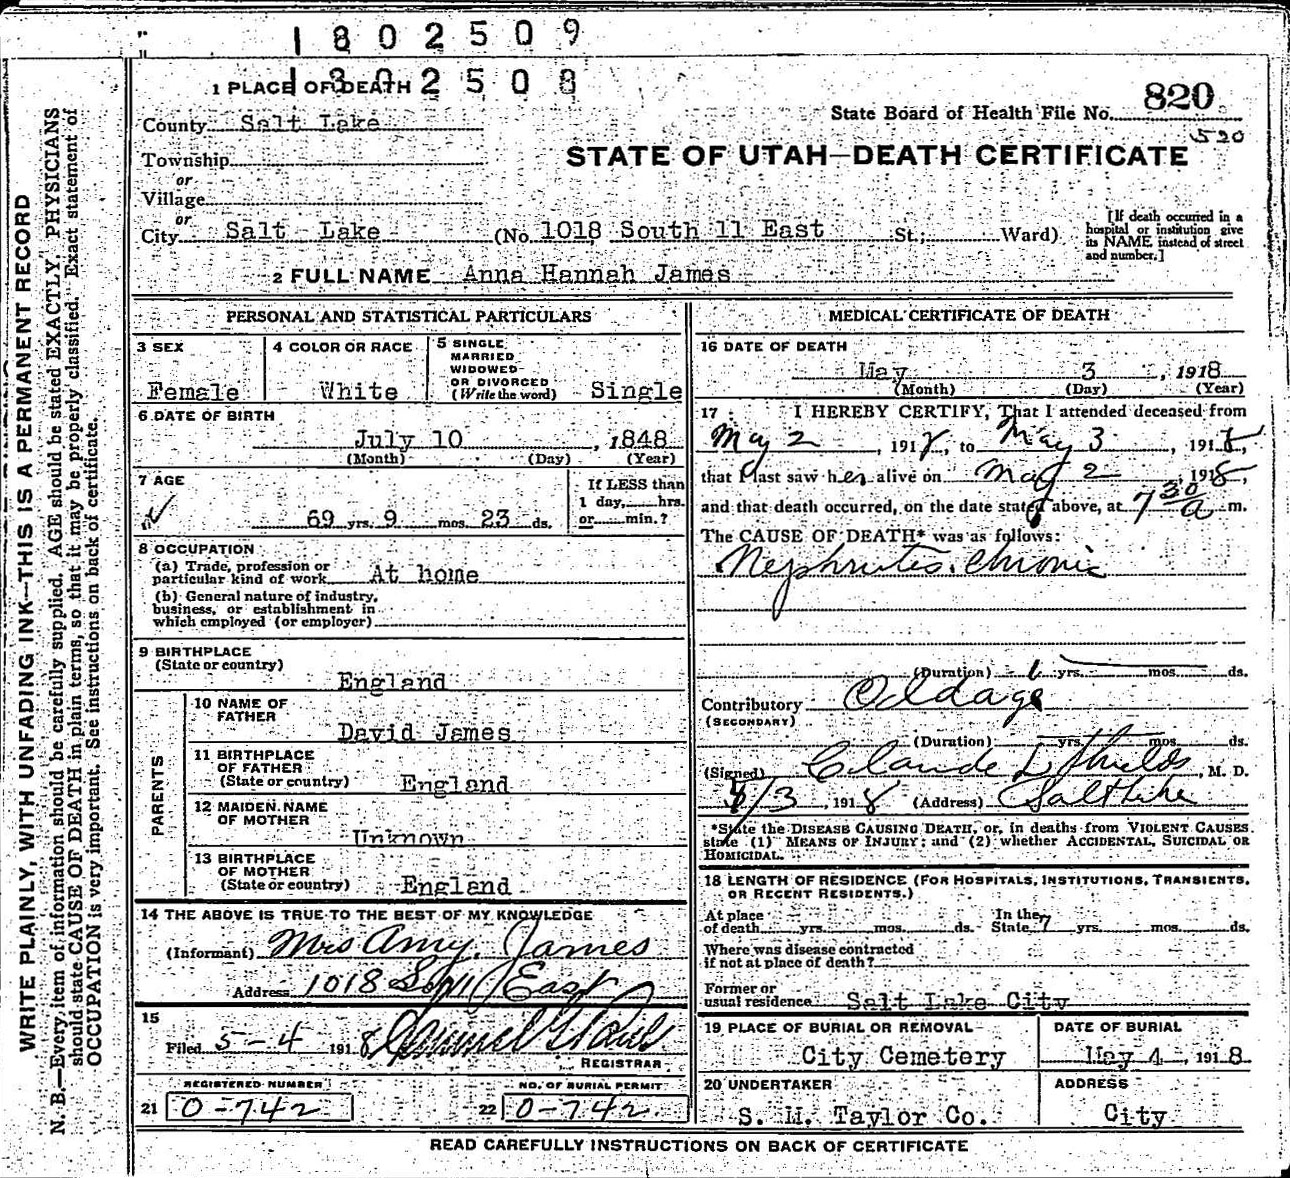 1802509
1302508
1 PLACE OF DEATH
State Board of Health File No. 820
520
County Salt Lake
STATE OF UTAH—DEATH CERTIFICATE
Township
or
Village
or
City Salt Lake (No. 1018 South 11 East St.; Ward)
[If death occurred in a
hospital or institution give
its NAME instead of street
and number.]
2 FULL NAME Anna Hannah James
PERSONAL AND STATISTICAL PARTICULARS
3 SEX
Female
4 COLOR OR RACE
White
5 SINGLE
MARRIED
WIDOWED
OR DIVORCED
(Write the word) Single
6 DATE OF BIRTH
July 10, 1848
(Month) (Day) (Year)
7 AGE
69 yrs. 9 mos. 23 ds.
If LESS than
1 day, hrs.
or min.?
8 OCCUPATION
(a) Trade, profession or
particular kind of work At home
(b) General nature of industry,
business, or establishment in
which employed (or employer)
9 BIRTHPLACE
(State or country)
England
PARENTS
10 NAME OF
FATHER
David James
11 BIRTHPLACE
OF FATHER
(State or country) England
12 MAIDEN NAME
OF MOTHER
Unknown
13 BIRTHPLACE
OF MOTHER
(State or country) England
14 THE ABOVE IS TRUE TO THE BEST OF MY KNOWLEDGE
(Informant) Mrs Amy James
Address 1018 So 11 East
15
Filed 5-4 1918
REGISTRAR
REGISTERED NUMBER
21 0-742
NO. OF BURIAL PERMIT
22 0-742
MEDICAL CERTIFICATE OF DEATH
16 DATE OF DEATH
May 3, 1918
(Month) (Day) (Year)
17 I HEREBY CERTIFY, That I attended deceased from
May 2, 1918, to May 3, 1918,
that I last saw her alive on May 2, 1918,
and that death occurred, on the date stated above, at 7 30 a m.
The CAUSE OF DEATH* was as follows:
Nephrites. Chronic
(Duration) yrs. mos. ds.
Contributory Old age
(SECONDARY)
(Duration) yrs. mos. ds.
(Signed) Claude L Shields, M. D.
5/3, 1918 (Address) Salt Lake
*State the DISEASE CAUSING DEATH, or, in deaths from VIOLENT CAUSES,
state (1) MEANS OF INJURY; and (2) whether ACCIDENTAL, SUICIDAL OR
HOMICIDAL.
18 LENGTH OF RESIDENCE (FOR HOSPITALS, INSTITUTIONS, TRANSIENTS,
OR RECENT RESIDENTS.)
At place
of death yrs. mos. ds.
In the
State 7 yrs. mos. ds.
Where was disease contracted
if not at place of death?
Former or
usual residence Salt Lake City
19 PLACE OF BURIAL OR REMOVAL
City Cemetery
DATE OF BURIAL
May 4, 1918
20 UNDERTAKER
S. M. Taylor Co.
ADDRESS
City
READ CAREFULLY INSTRUCTIONS ON BACK OF CERTIFICATE
WRITE PLAINLY, WITH UNFADING INK—THIS IS A PERMANENT RECORD
N. B.—Every item of information should be carefully supplied. AGE should be stated EXACTLY. PHYSICIANS
should state CAUSE OF DEATH in plain terms, so that it may be properly classified. Exact statement of
OCCUPATION is very important. See instructions on back of certificate.